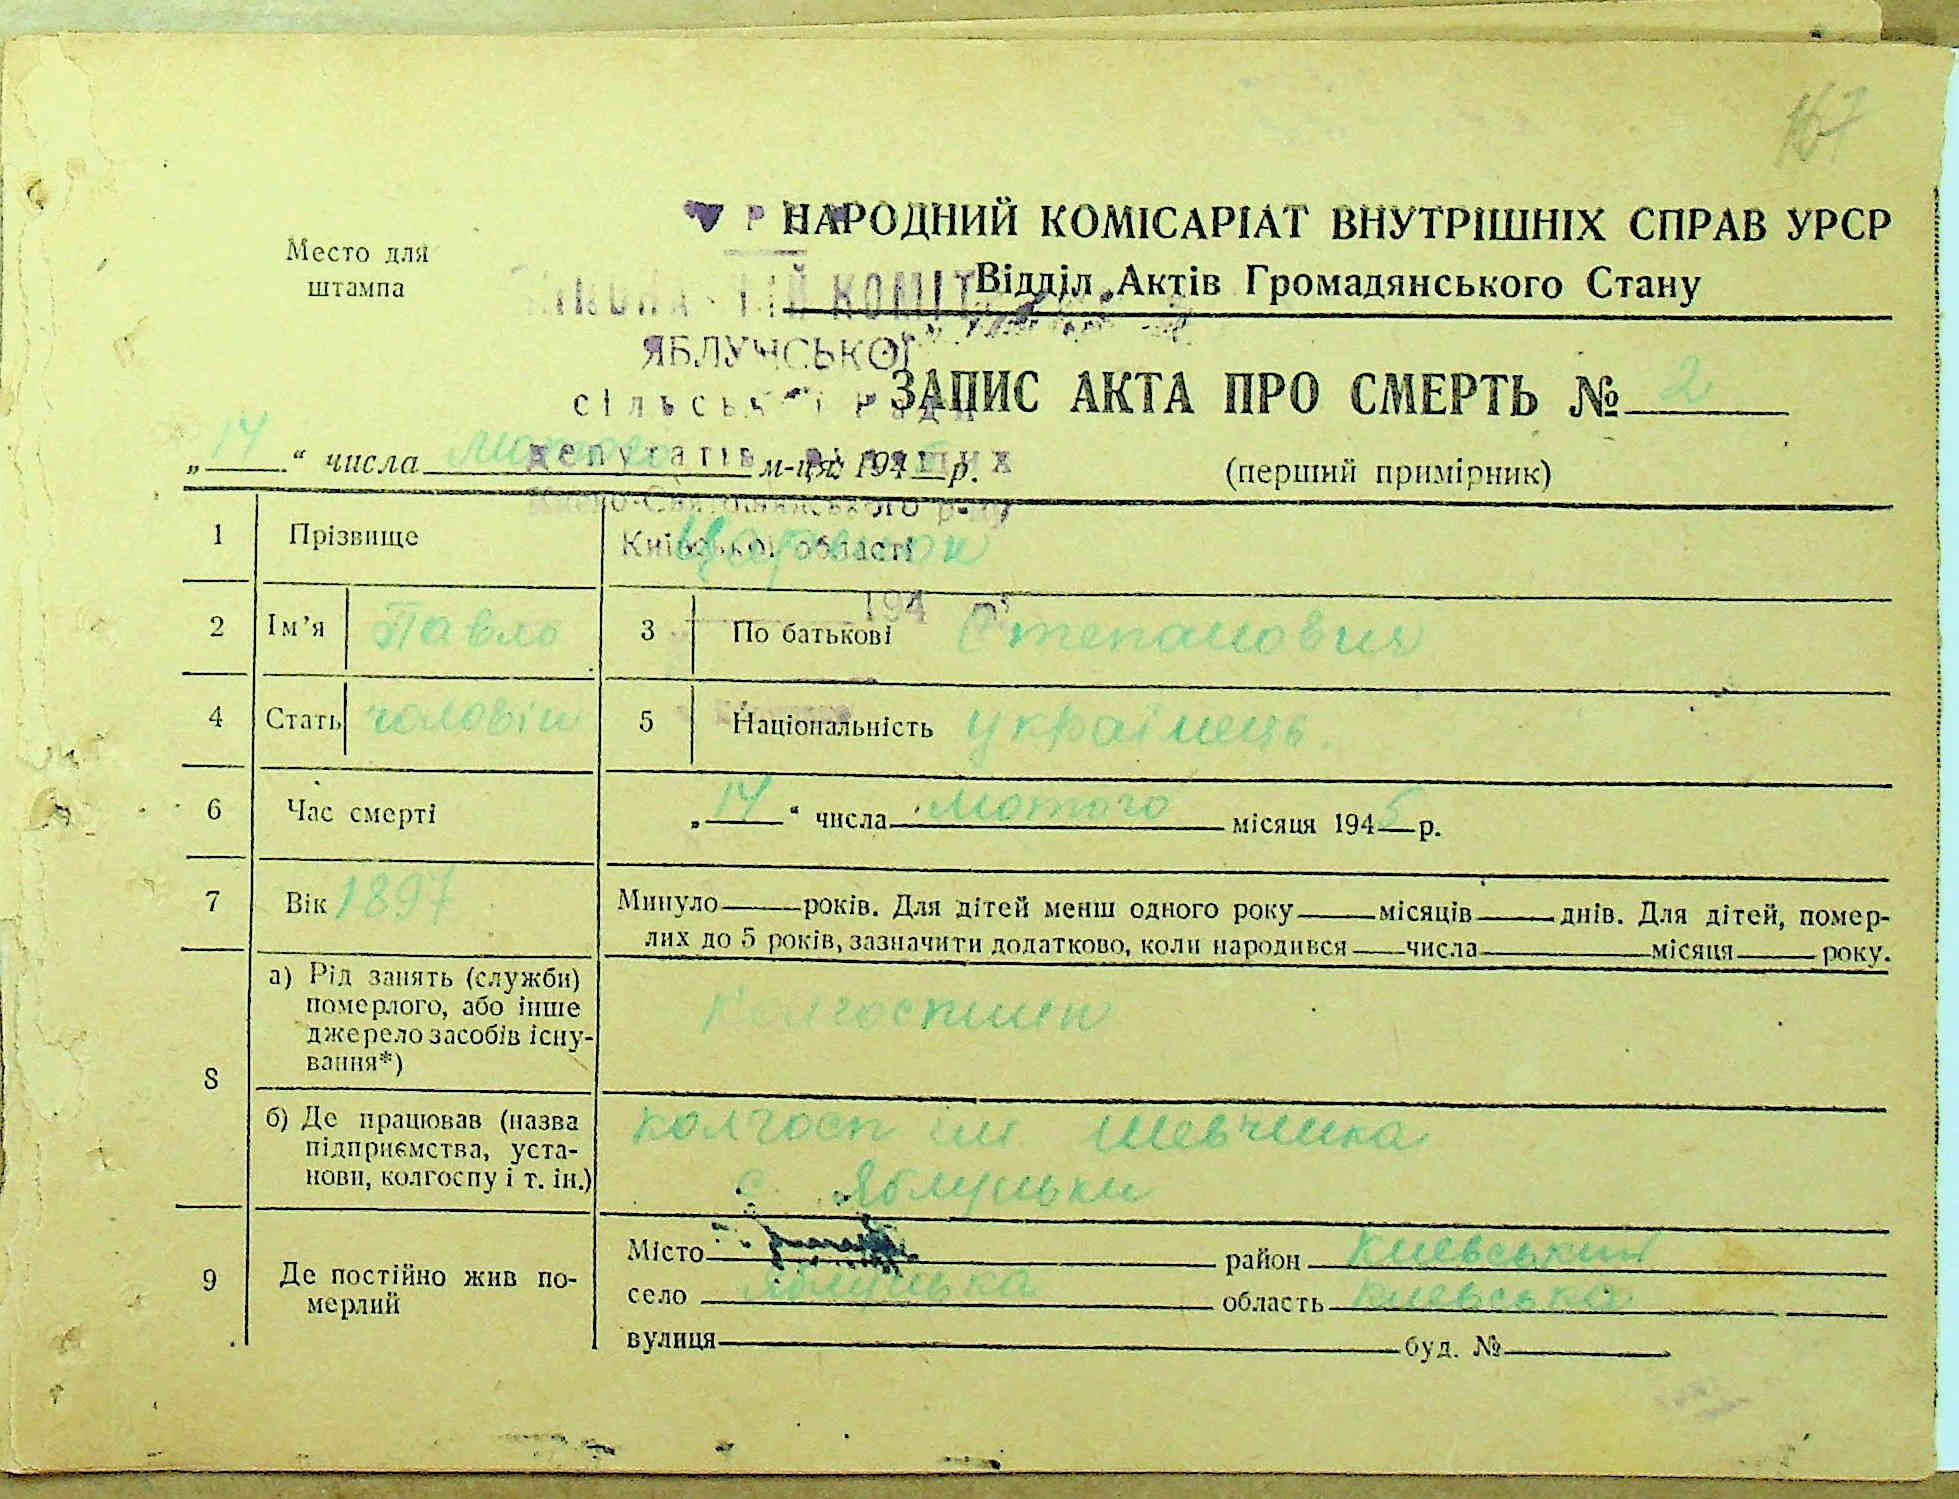 167
НАРОДНИЙ КОМІСАРІАТ ВНУТРІШНІХ СПРАВ УРСР
Место для
штампа
Відділ Актів Громадянського Стану
КОМІТ
ЯБЛУЧСЬКОЇ
сільської Ради
депутатів
Києво-Святошинського р-ну
Київської області
194 р.
ЗАПИС АКТА ПРО СМЕРТЬ № 2
„14“ числа лютого м-ця 194 р.
(перший примірник)
1 Прізвище
2 Ім’я Павло 3 По батькові Степанович
4 Стать чоловік 5 Національність українець
6 Час смерті „14“ числа лютого місяця 1945 р.
7 Вік 1897 Минуло років. Для дітей менш одного року місяців днів. Для дітей, помер-
лих до 5 років, зазначити додатково, коли народився числа місяця року.
8 а) Рід занять (служби)
померлого, або інше
джерело засобів існу-
вання*)
Колгоспник
б) Де працював (назва
підприємства, уста-
нови, колгоспу і т. ін.)
колгосп ім Шевченка
с. Яблуньки
9 Де постійно жив по-
мерлий
Місто район Киевський
село Яблунька область Киевська
вулиця буд. №